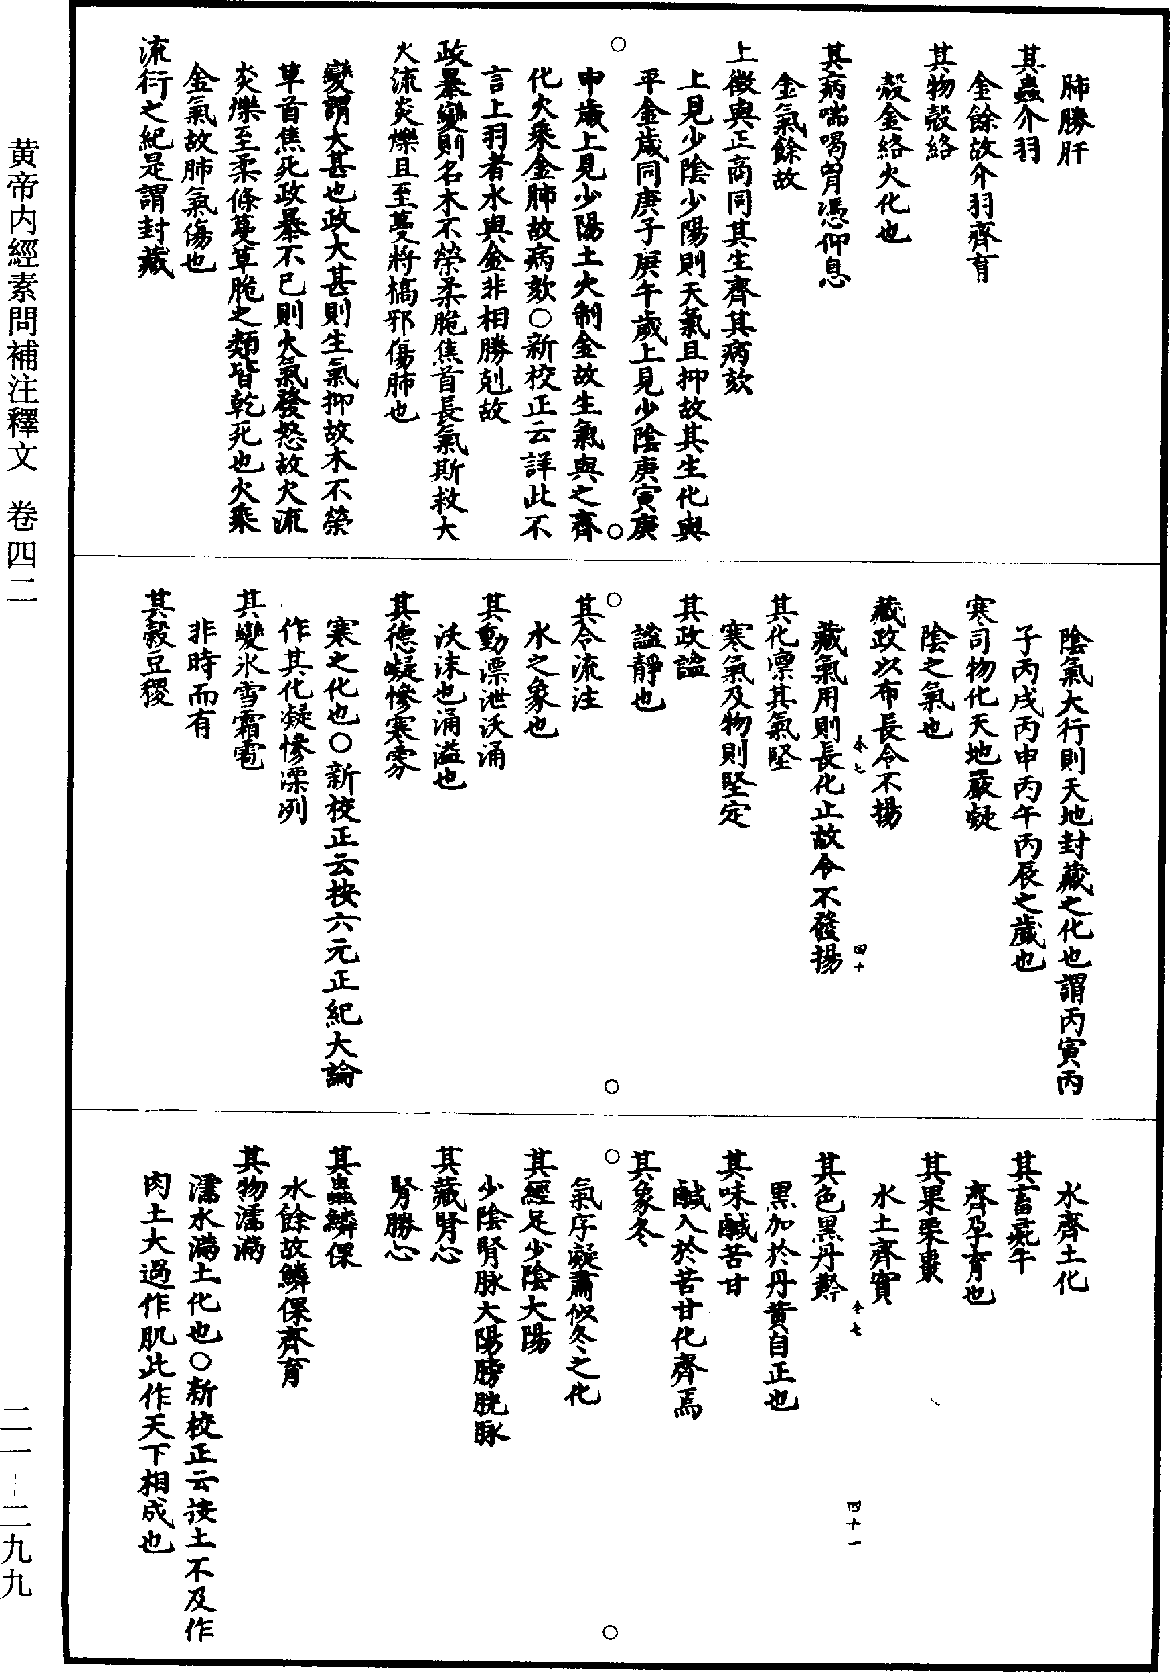 肺勝肝
其蟲介羽
金餘故介羽齊育
其物殼絡
殼金絡火化也
其病喘喝胷憑仰息
金氣餘故
上徵與正商同其生齊其病欬
上見少陰少陽則天氣且抑故其生化與
平金歲同庚子庚午歲上見少陰庚寅庚
申歲上見少陽土火制金故生氣與之齊
化火乘金肺故病欬○新校正云詳此不
言上羽者水與金非相勝剋故
政暴變則名木不榮柔脆焦首長氣斯救大
火流炎爍且至蔓將槁邪傷肺也
變謂大甚也政大甚則生氣抑故木不榮
草首焦死政暴不已則火氣發怒故火流
炎爍至柔條蔓草脆之類皆乾死也火乘
金氣故肺氣傷也
流衍之紀是謂封藏
陰氣大行則天地封藏之化也謂丙寅丙
子丙戌丙申丙午丙辰之歲也
寒司物化天地嚴凝
陰之氣也
藏政以布長令不揚
藏氣用則長化止故令不發揚
卷七 四十
其化凛其氣堅
寒氣及物則堅定
其政謐
謐靜也
其令流注
水之象也
其動漂泄沃涌
沃沫也涌溢也
其德凝慘寒雰
寒之化也○新校正云按六元正紀大論
作其化凝慘凓冽
其變冰雪霜雹
非時而有
其穀豆稷
水齊土化
其畜彘牛
齊孕育也
其果栗棗
水土齊實
其色黑丹黅
卷七 四十一
黑加於丹黄自正也
其味鹹苦甘
鹹入於苦甘化齊焉
其象冬
氣序凝肅似冬之化
其經足少陰大陽
少陰腎脉大陽膀胱脉
其藏腎心
腎勝心
其蟲鱗倮
水餘故鱗倮齊育
其物濡滿
濡水滿土化也○新校正云按土不及作
肉土大過作肌此作天下相成也
黄帝内經素問補注釋文 卷四二
二一—二九九